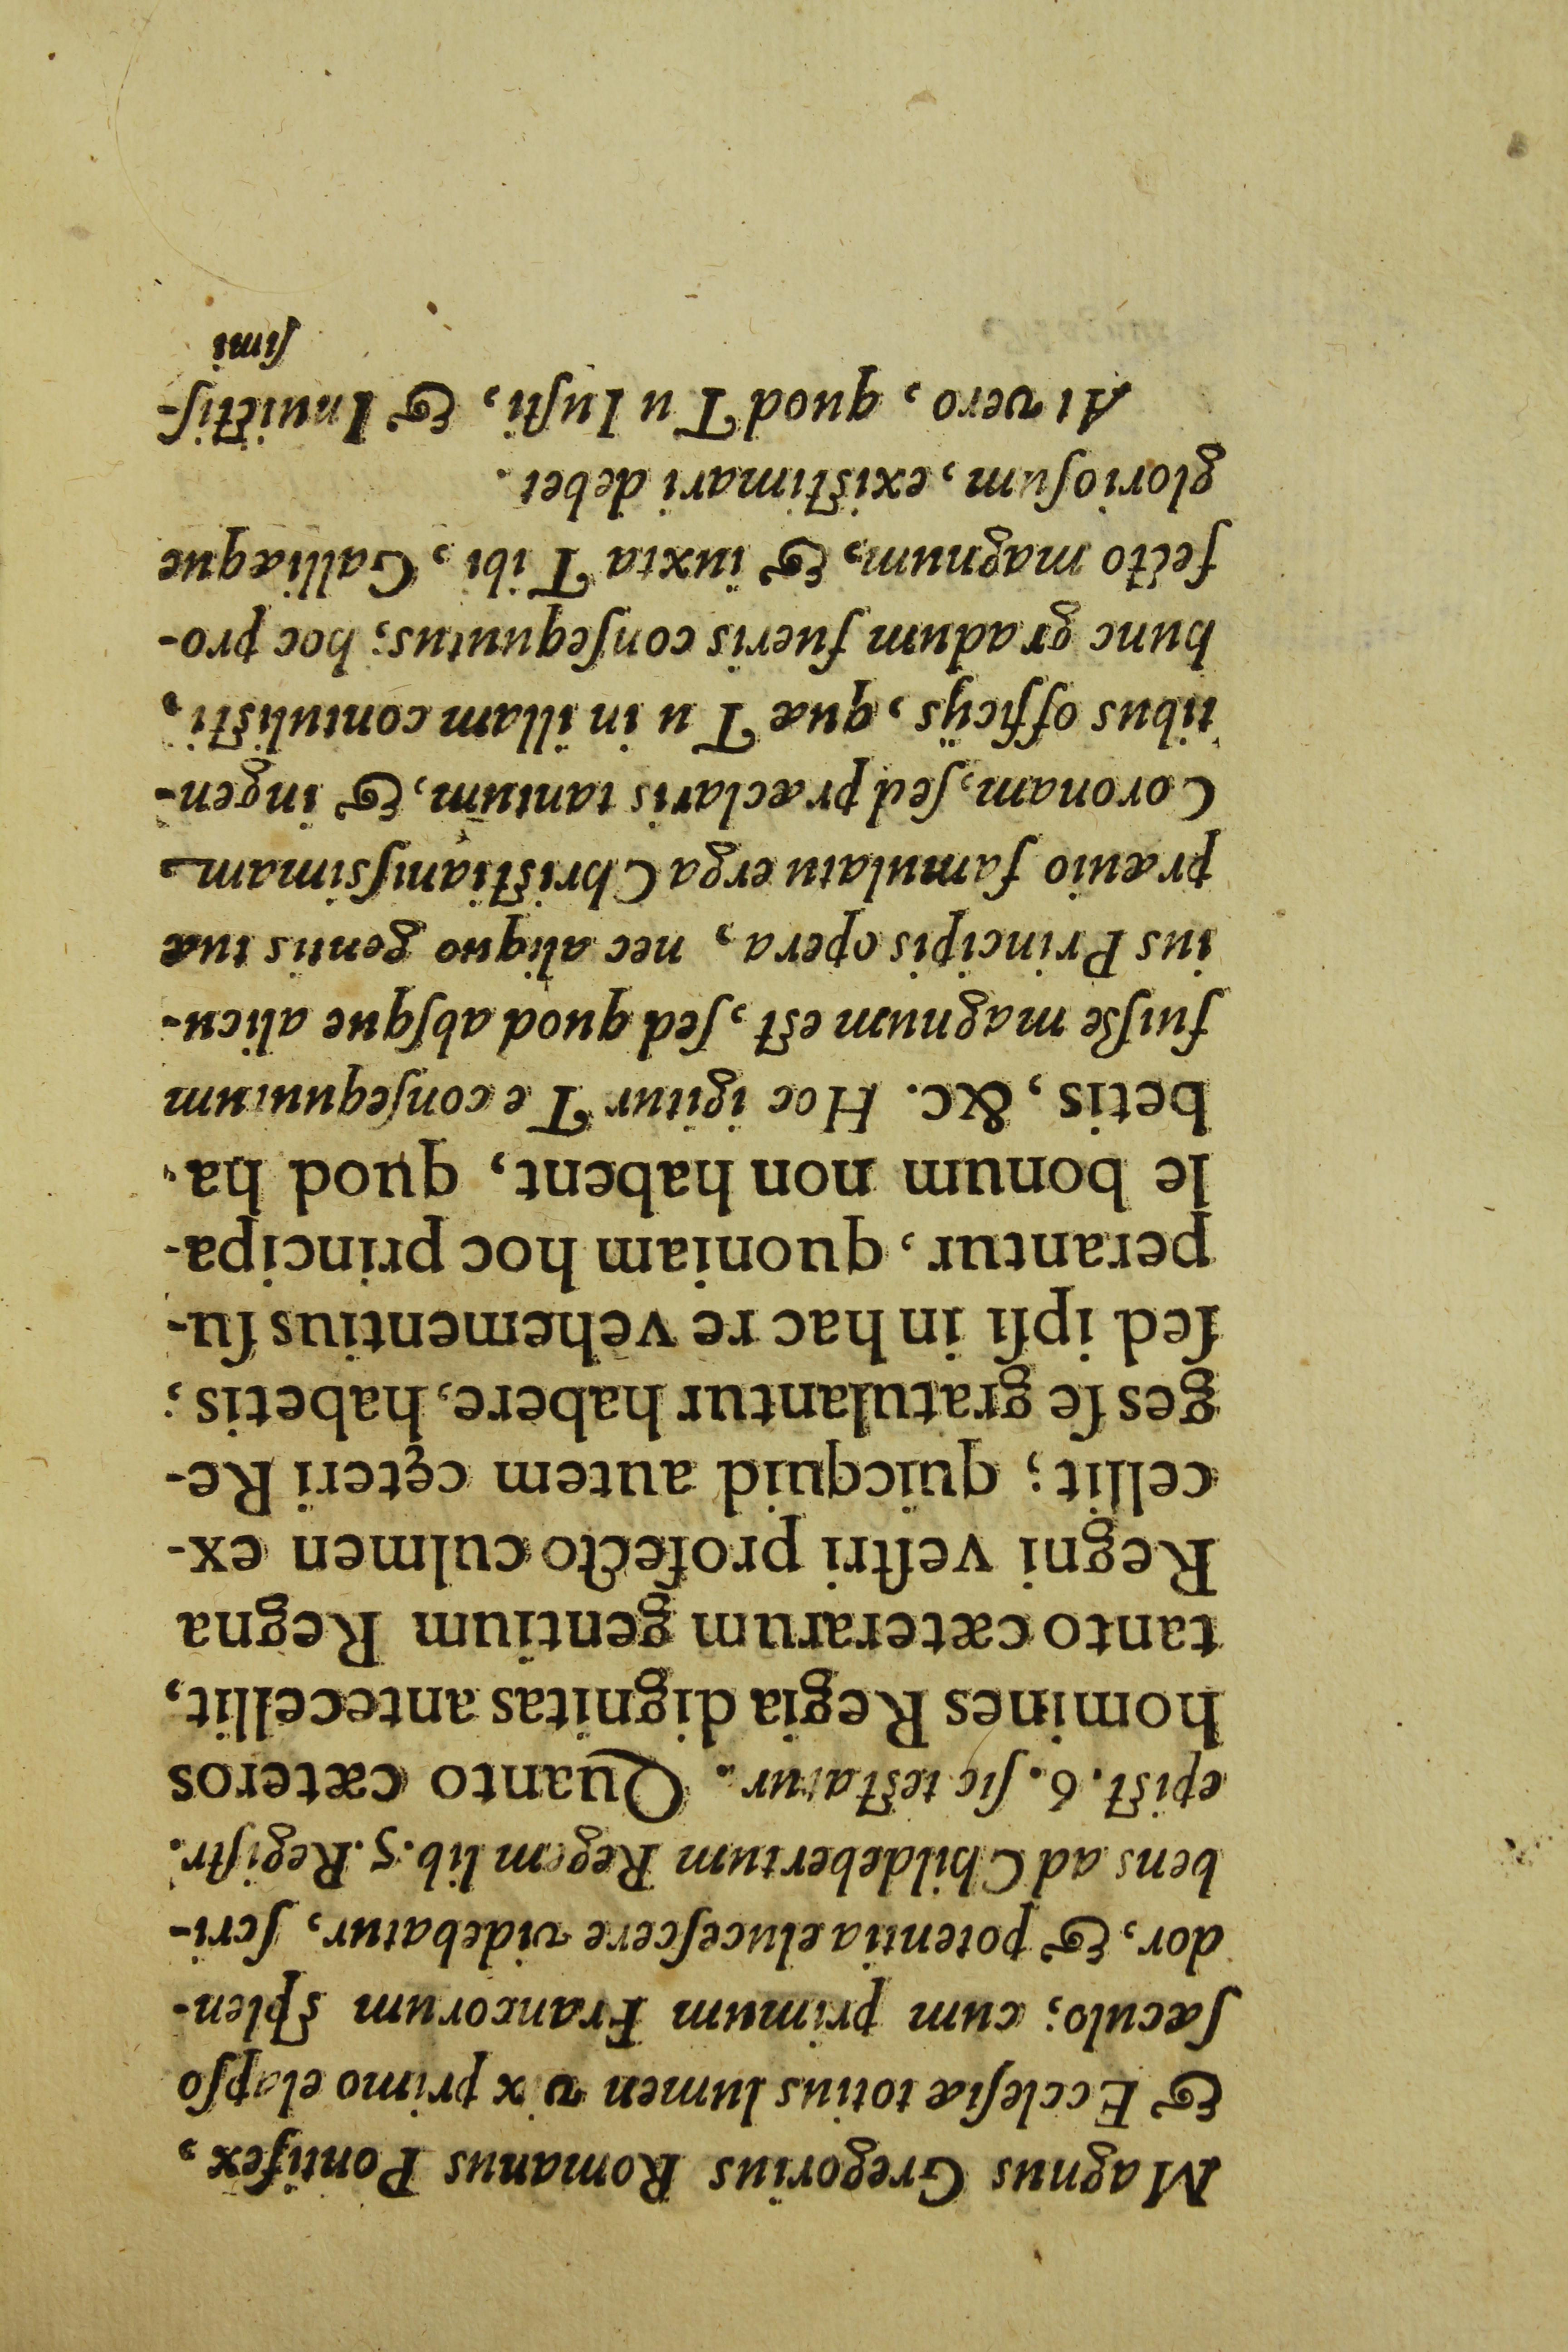 Magnus Gregorius Romanus Pontifex,
& Ecclesiæ totius lumen vix primo elapso
sæculo; cum primum Francorum splen-
dor, & potentia elucescere videbatur, scri-
bens ad Childebertum Regem lib. 5. Registr.
epist. 6. sic testatur. Quanto cæteros
homines Regia dignitas antecellit,
tanto cæterarum gentium Regna
Regni vestri profecto culmen ex-
cellit; quicquid autem cęteri Re-
ges se gratulantur habere, habetis;
sed ipsi in hac re vehementius su-
perantur, quoniam hoc principa-
le bonum non habent, quod ha-
betis, &c. Hoc igitur Te consequutum
fuisse magnum est, sed quod absque alicu-
ius Principis opera, nec aliquo gentis tuæ
præuio famulatu erga Christianissimam
Coronam, sed præclaris tantum, & ingen-
tibus officijs, quæ Tu in illam contulisti,
hunc gradum fueris consequutus; hoc pro-
fecto magnum, & iuxta Tibi, Galliæque
gloriosum, existimari debet.
At vero, quod Tu Iusti, & Inuictis-
simi